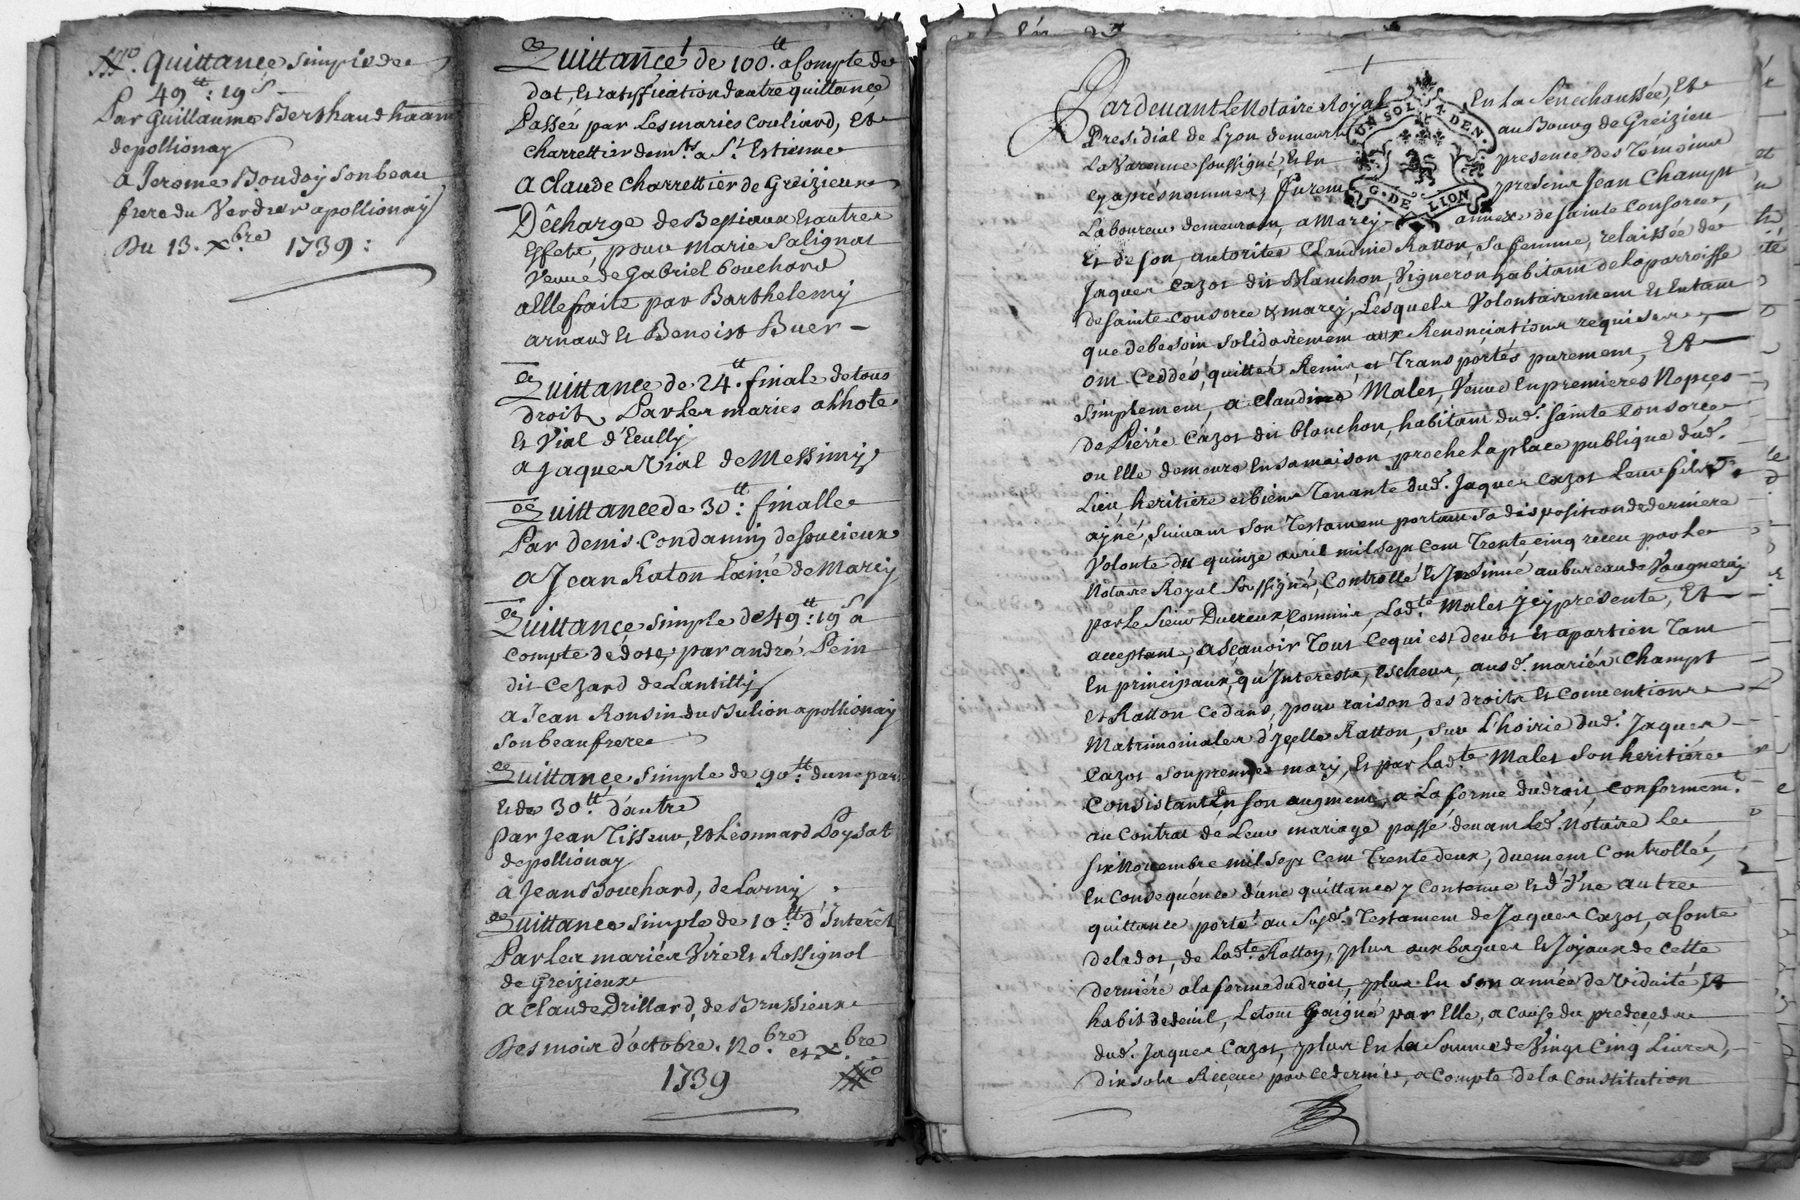 No. quittance simple de
49tt: 19s
Par Guillaume Berthaud
de pollionay
a Jerome Bouday son beau
frere du Verdier a pollionay
Du 13. xbre 1739:
Quittance de 100tt. a Compte de
dot, Et ratiffication d'autre quittance,
Passée par Les maries Couliard, Et
Charrettier demts. a St. Estienne
a claude Charrettier de Greizieux
Décharge de Bestiaux Et autres
Effets, pour Marie Salignat
Veuve de Gabriel bouchard
a Elle faite par Barthelemy
arnaud Et Benoist Buer
Quittance de 24tt. finale de tous
droits Par Les maries
Et Vial d'Ecully
a Jaques Vial de Messimy
Quittance de 30tt: finalle
Par denis Condamin de soucieux
a Jean Raton l'ainé de Marcy
Quittance simple de 49tt: 19s a
compte de dote, par andré Pein
dit Cezard de Lantilly
a Jean Ronsin du Julion a pollionay
son beaufrere
Quittance simple de 90tt: dune par
Et de 30tt. d'autre
par Jean Tisseur, Et Léonnard Poysat
de pollionay
a Jean Bouchard, de Larny
Quittance simple de 10tt: d'Interêt
Par Les mariés Viré Et Rossignol
de Greizieux
a Claude Drillard, de Brussieux
Des mois d'octobre. Nobre. et xbre
1739
Pardevant Le Notaire Royal En la Senechaussée, Et
Presidial de Lyon demeurt au Bourg de Greizieu
La Varenne soussigné, Et En presence des Témoins
cy aprés nommez, furent presens Jean Champt
UN SOL 4 DEN
G. DE LION
Laboureur demeurant, a Marcy annexe de Sainte Consorce,
Et de son autorités Claudine Ratton, sa femme, relaissée de
Jaques Cazot dit Blanchon, Vigneron habitant de la parroisse
de Sainte Consorce & marcy, Lesquels Volontairement Et En tant
que de besoin solidairement aux Renonciations requises,
ont Ceddés, quittés, Remis, et Transportés purement, Et
simplement, a Claudine Males, Veuve En premieres Nopces
de Pierre Cazot dit blanchon, habitant dud. Sainte Consorce
ou Elle demeure En sa maison proche La place publique dud.
Lieu, heritiere et bien Tenante dud. Jaques Cazot Leur fils
ayné, suivant son Testament portant sa disposition de derniere
Volonte du quinze avril mil sept Cent Trente cinq receu par Le
Notaire Royal soussigné, Controllé Et Insinué au bureau de Vaugneray
par Le Sieur Ducreux Commis, Ladte Males Icy presente, Et
acceptant, asçavoir Tout Ce qui est deubt Et apartien Tant
En principaux, qu'Interests, Escheus, ausd. mariés Champt
Et Ratton Cedans, pour raison des droits Et Conventions
Matrimoniales d'Icelle Ratton, sur L'hoirie dud. Jaques
Cazot son premier mary, Et par Ladte Males son heritiere
Consistant En son augment, a La forme du droit Conformemt.
au Contrat de Leur mariage passé devant Led. Notaire Le
six Novembre mil sept Cent Trente deux, duement Controllé,
En consequence d'une quittance y Contenue Et d'Vne autre
quittance porté au susd. Testament de Jaques Cazot, a Conte
de la dot, de Ladte. Ratton, plus aux bagues Et Joyaux de Cette
derniére a la forme du droit, plus En son année de Viduité, Et
habit de deuil, Le tout Gaigné par Elle, a Cause du predeceds
dud. Jaques Cazot, plus En la Somme de Vingt Cinq Livres,
dix sols Reçeue par Ce dernier, a Compte de la Constitution